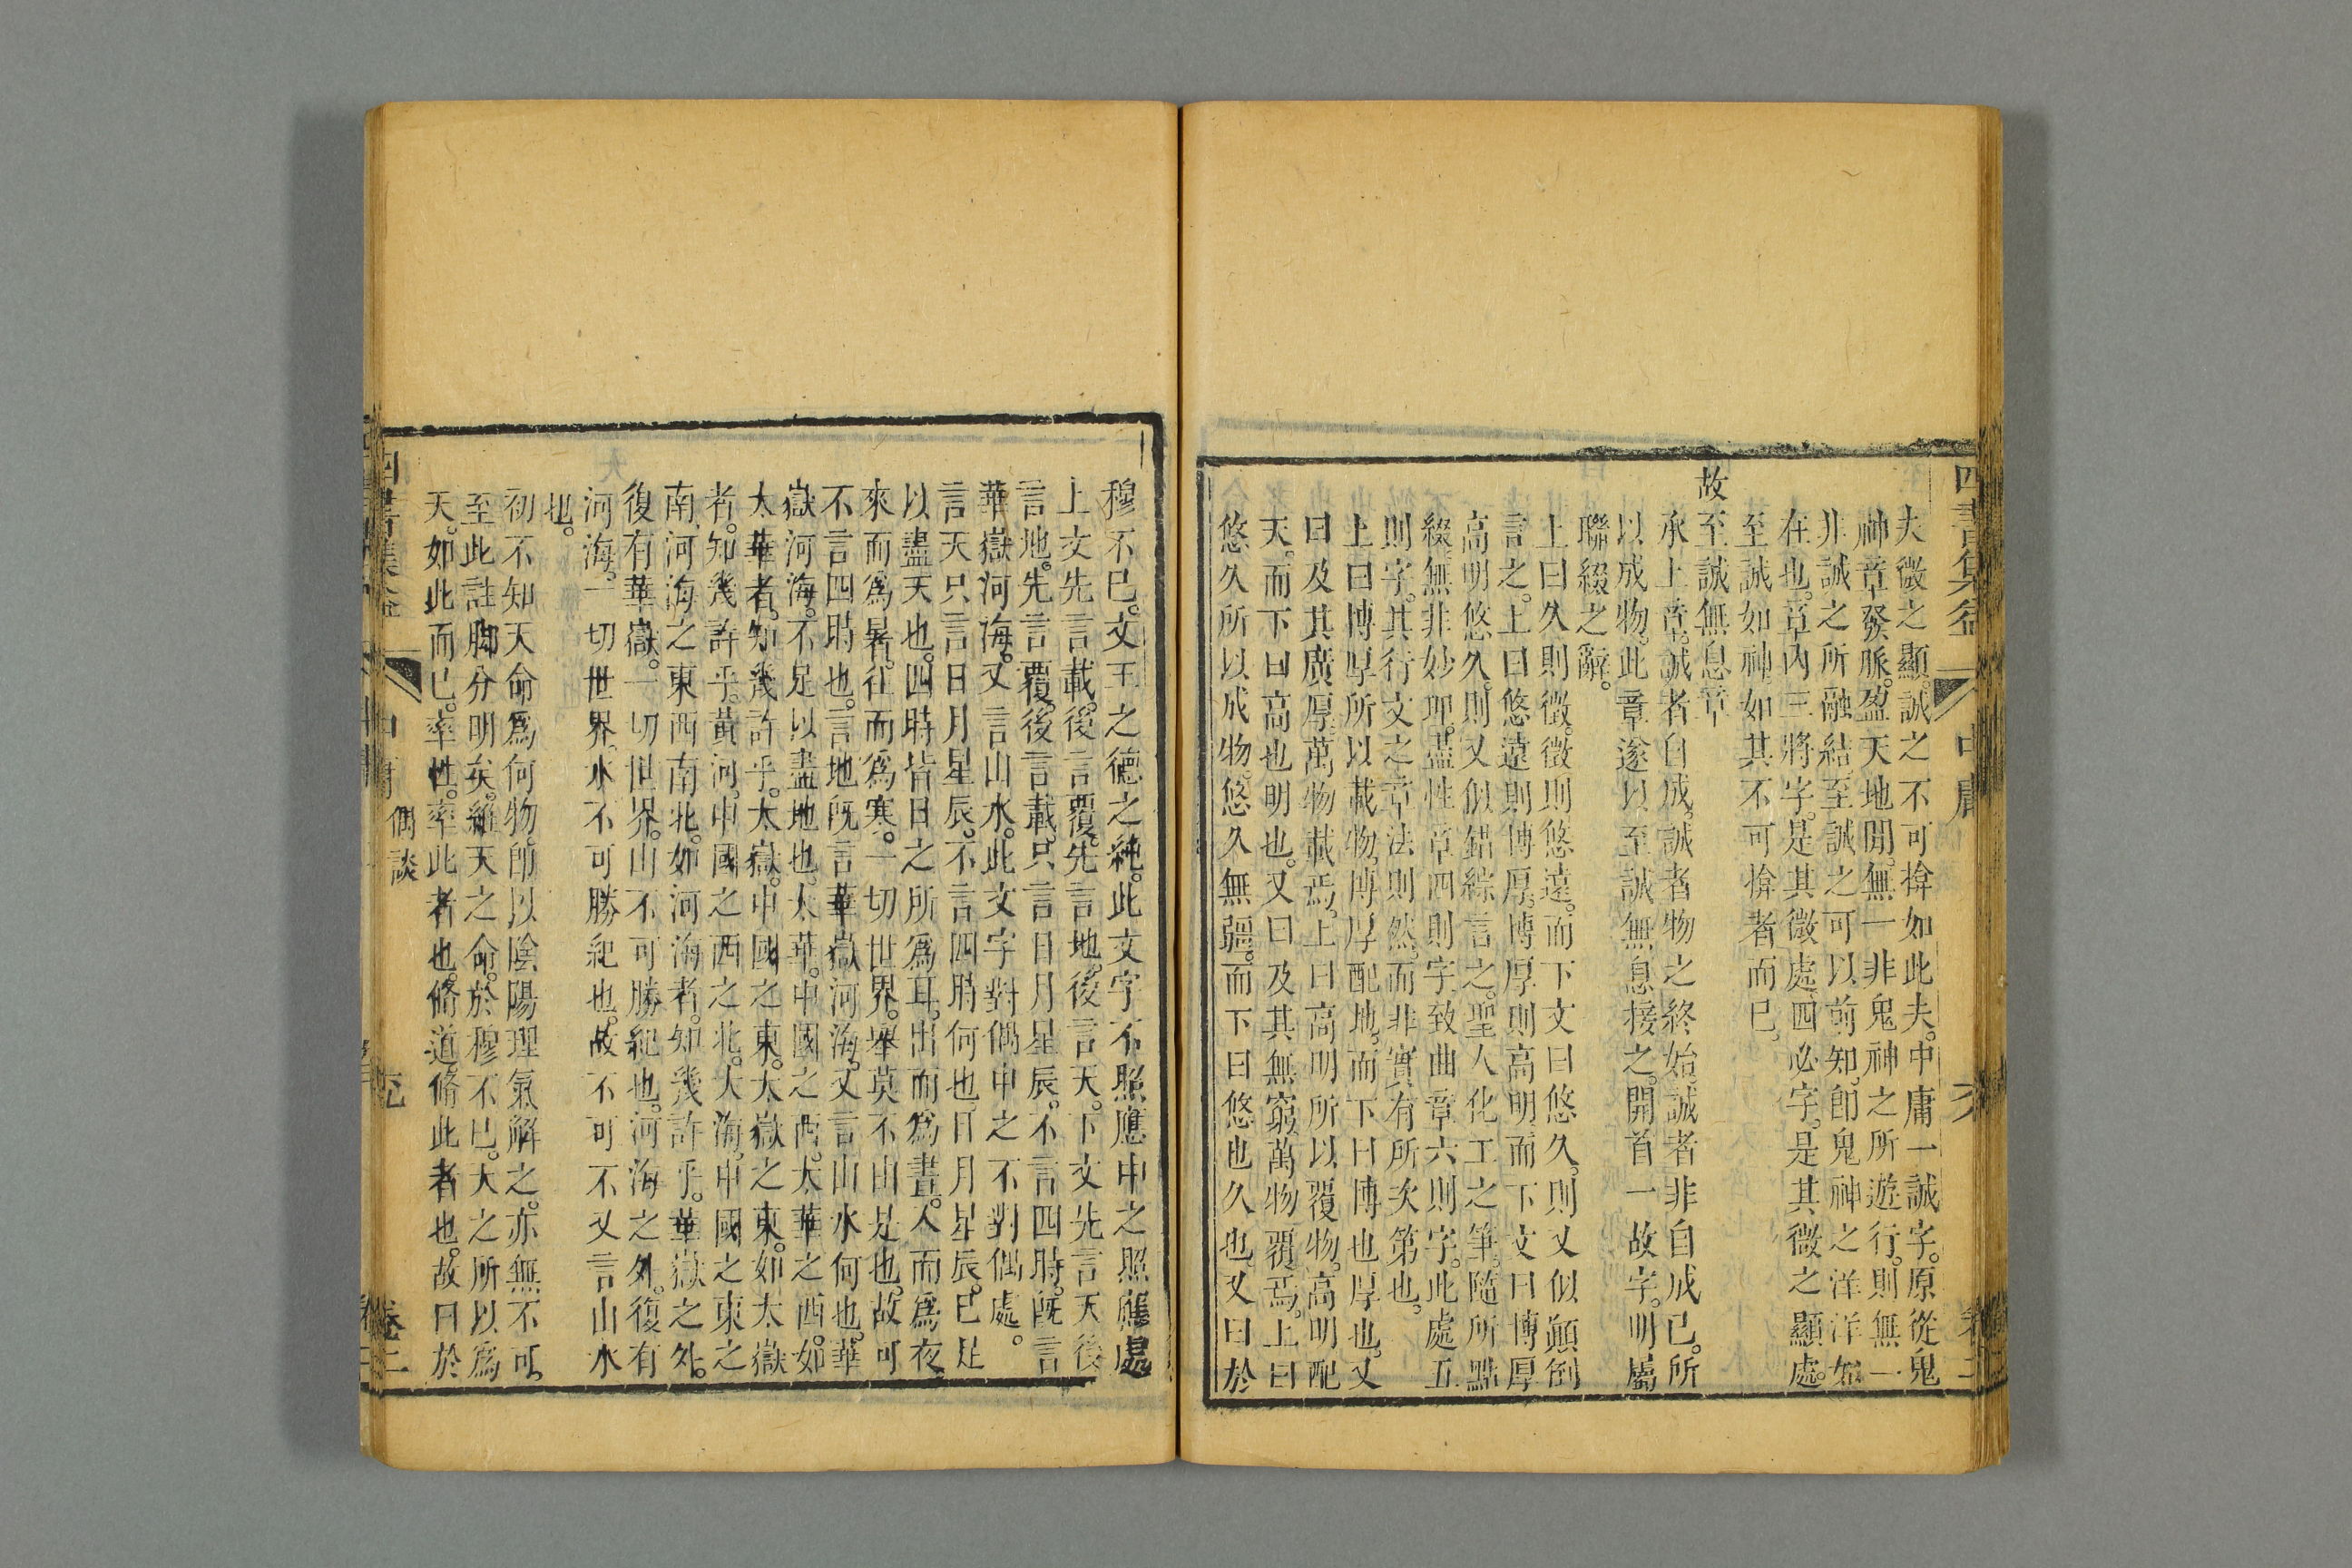 夫微之顯誠之不可揜如此夫。中庸一誠字。原從鬼
神章發脈。盈天地間。無一非鬼神之所遊行。則無一
非誠之所融結。至誠之可以前知。卽鬼神之洋洋如
在也。章內三將字。是其微處。四必字。是其微之顯處。
至誠如神如其不可揜者而已。
故至誠無息章
承上章。誠者自成。誠者物之終始。誠者非自成已。所
以成物。此章遂以至誠無息接之。開首一故字。明屬
聯綴之辭。
上曰久則徵。徵則悠遠。而下文曰悠久。則又似顛倒
言之。上曰悠遠則博厚。博厚則高明。而下文曰博厚
高明悠久。則又似錯綜言之。聖人化工之筆。隨所點
綴。無非妙理。盡性章四則字致曲章六則字。此處五
則字。其行文之章法則然。而非實有所次第也。
上曰博厚所以載物。博厚配地。而下曰博也厚也。又
曰及其廣厚。萬物載焉。上曰高明所以覆物。高明配
天。而下曰高也明也。又曰及其無窮。萬物覆焉。上曰
悠久所以成物。悠久無疆。而下曰悠也久也。又曰於
四書集益
中庸
卷二
穆不已。文王之德之純。此文字不照應中之照應處
上文先言載。後言覆。先言地。後言天。下文先言天後
言地。先言覆。後言載。只言日月星辰。不言四時。旣言
華嶽河海。又言山水。此文字對偶中之不對偶處。
言天只言日月星辰。不言四時何也。日月星辰。已足
以盡天也。四時皆日之所爲耳。出而爲晝。入而爲夜
來而爲暑。往而爲寒。一切世界。舉莫不由是也。故可
不言四時也。言地旣言華嶽河海。又言山水何也。華
嶽河海。不足以盡地也。太華。中國之西。太華之西。如
太華者。知幾許乎。太嶽。中國之東。太嶽之東。如太嶽
者。知幾許乎。黃河。中國之西之北。大海。中國之東之
南。河海之東西南北。如河海者。知幾許乎。華嶽之外。
復有華嶽。一切世界。山不可勝紀也。河海之外。復有
河海。一切世界。水不可勝紀也。故不可不又言山水
也。
初不知天命爲何物。卽以陰陽理氣解之。亦無不可。
至此註脚分明矣。維天之命。於穆不已。天之所以爲
天。如此而已。率性。率此者也。脩道。脩此者也。故曰於
四書集益
中庸
偶談
卷二